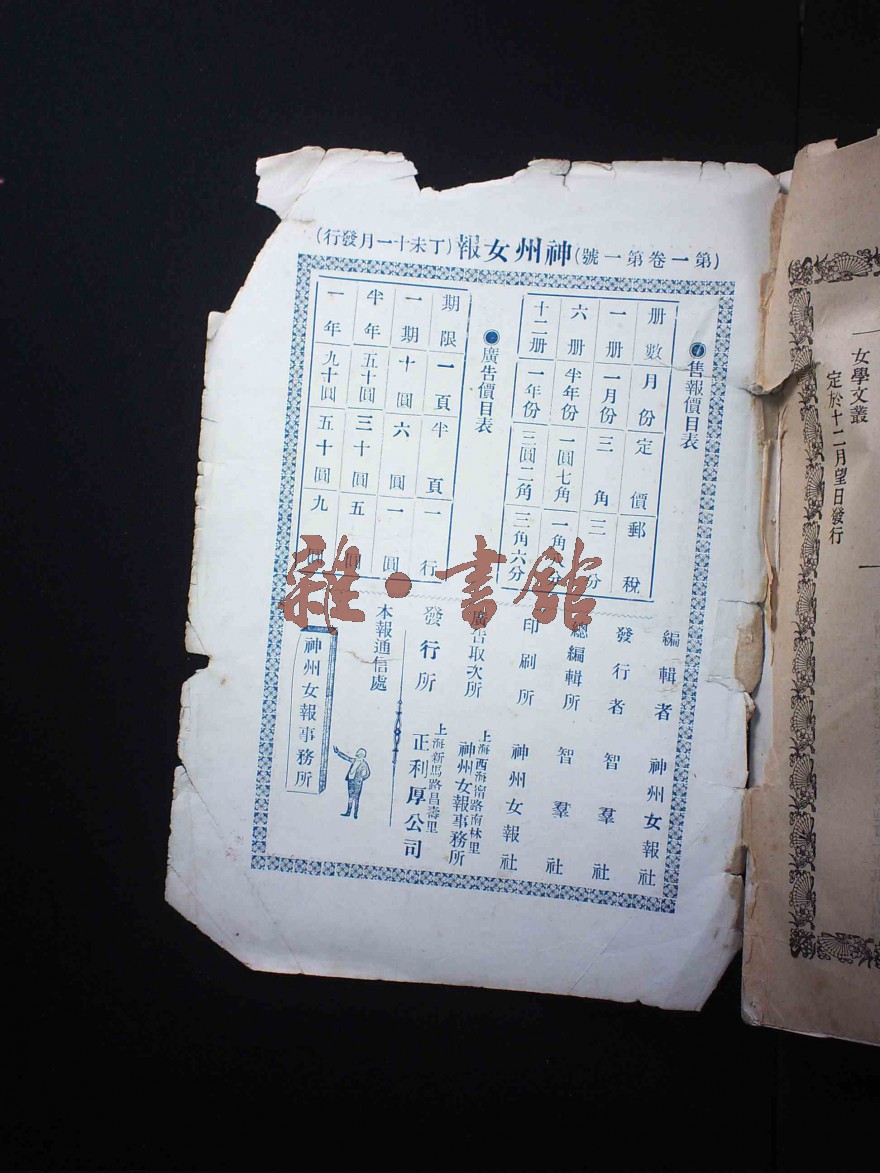 (第一卷第一號)神州女報(丁未十一月發行)
●售報價目表
册數 月份 定價 郵稅
一册 一月份 三角 三分
六册 半年份 一圓七角 一角分
十二册 一年份 三圓二角 三角六分
●廣告價目表
期限 一頁 半頁 一行
一期 十圓 六圓 一圓
半年 五十圓 三十圓 五圓
一年 九十圓 五十圓 九圓
編輯者 神州女報社
發行者 智羣社
總編輯所 智羣社
印刷所 神州女報社
廣告取次所 上海西海甯路南林里
神州女報事務所
發行所 上海新馬路昌壽里
正利厚公司
本報通信處
神州女報事務所
雜·書館
女學文叢
定於十二月望日發行